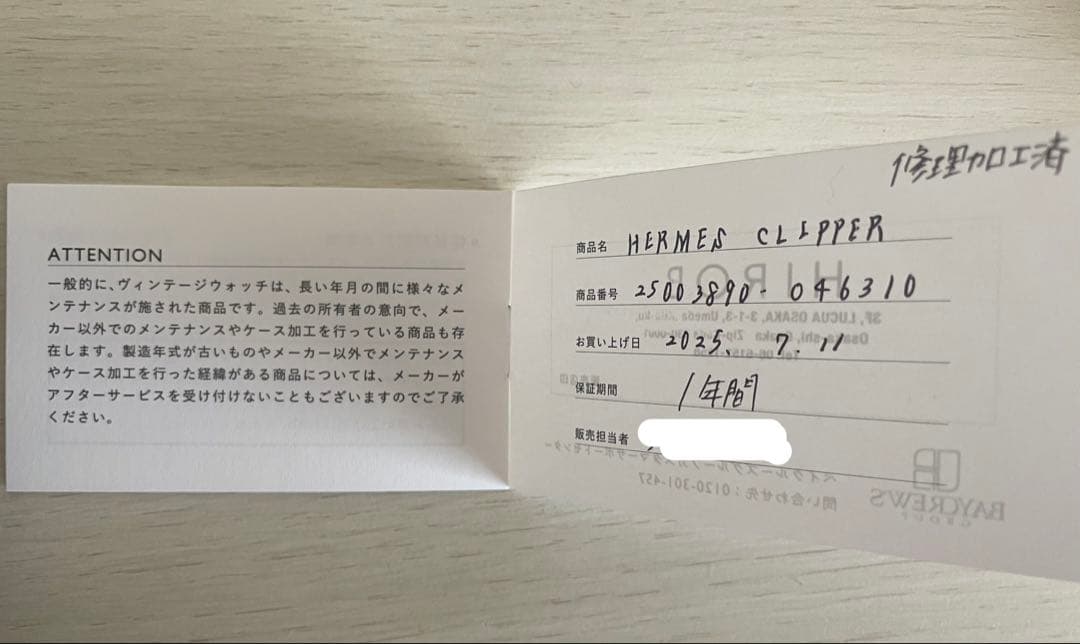 ATTENTION
一般的に、ヴィンテージウォッチは、長い年月の間に様々なメ
ンテナンスが施された商品です。過去の所有者の意向で、メー
カー以外でのメンテナンスやケース加工を行っている商品も存
在します。製造年式が古いものやメーカー以外でメンテナンス
やケース加工を行った経緯がある商品については、メーカーが
アフターサービスを受け付けないこともございますのでご了承
ください。
修理加工済
商品名 HERMES CLIPPER
商品番号 25003890-046310
お買い上げ日 2025. 7. 11
保証期間 1年間
販売担当者
HIROB
SF, LUCUA OSAKA, 3-1-3, Umeda
Osaka-shi, Osaka
ベイクルーズグループカスタマーサポートセンター
問い合わせ先：0120-301-457
BAYCREW'S
GROUP